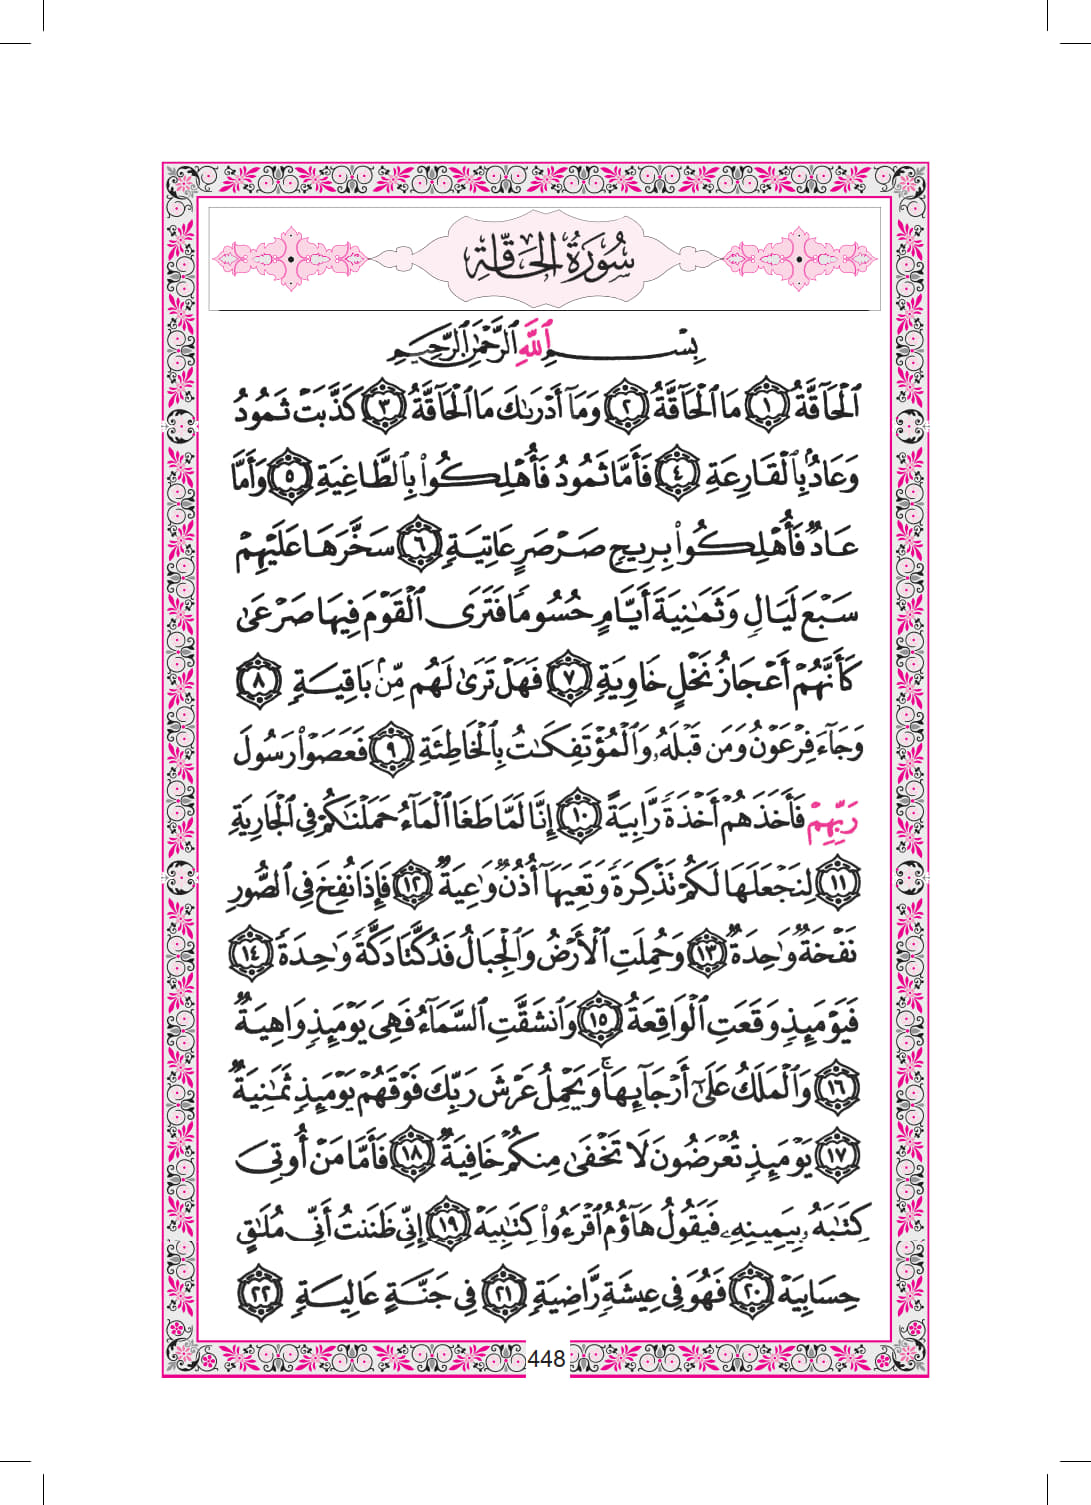 سُورَةُ الحَاقَّةِ
بِسْمِ ٱللَّهِ ٱلرَّحْمَٰنِ ٱلرَّحِيمِ
ٱلْحَآقَّةُ ١ مَا ٱلْحَآقَّةُ ٢ وَمَآ أَدْرَىٰكَ مَا ٱلْحَآقَّةُ ٣ كَذَّبَتْ ثَمُودُ
وَعَادٌۢ بِٱلْقَارِعَةِ ٤ فَأَمَّا ثَمُودُ فَأُهْلِكُوا۟ بِٱلطَّاغِيَةِ ٥ وَأَمَّا
عَادٌ فَأُهْلِكُوا۟ بِرِيحٍ صَرْصَرٍ عَاتِيَةٍ ٦ سَخَّرَهَا عَلَيْهِمْ
سَبْعَ لَيَالٍ وَثَمَٰنِيَةَ أَيَّامٍ حُسُومًا فَتَرَى ٱلْقَوْمَ فِيهَا صَرْعَىٰ
كَأَنَّهُمْ أَعْجَازُ نَخْلٍ خَاوِيَةٍ ٧ فَهَلْ تَرَىٰ لَهُم مِّنۢ بَاقِيَةٍ ٨
وَجَآءَ فِرْعَوْنُ وَمَن قَبْلَهُۥ وَٱلْمُؤْتَفِكَٰتُ بِٱلْخَاطِئَةِ ٩ فَعَصَوْا۟ رَسُولَ
رَبِّهِمْ فَأَخَذَهُمْ أَخْذَةً رَّابِيَةً ١٠ إِنَّا لَمَّا طَغَا ٱلْمَآءُ حَمَلْنَٰكُمْ فِى ٱلْجَارِيَةِ
١١ لِنَجْعَلَهَا لَكُمْ تَذْكِرَةً وَتَعِيَهَآ أُذُنٌ وَٰعِيَةٌ ١٢ فَإِذَا نُفِخَ فِى ٱلصُّورِ
نَفْخَةٌ وَٰحِدَةٌ ١٣ وَحُمِلَتِ ٱلْأَرْضُ وَٱلْجِبَالُ فَدُكَّتَا دَكَّةً وَٰحِدَةً ١٤
فَيَوْمَئِذٍ وَقَعَتِ ٱلْوَاقِعَةُ ١٥ وَٱنشَقَّتِ ٱلسَّمَآءُ فَهِىَ يَوْمَئِذٍ وَاهِيَةٌ
١٦ وَٱلْمَلَكُ عَلَىٰٓ أَرْجَآئِهَا ۚ وَيَحْمِلُ عَرْشَ رَبِّكَ فَوْقَهُمْ يَوْمَئِذٍ ثَمَٰنِيَةٌ
١٧ يَوْمَئِذٍ تُعْرَضُونَ لَا تَخْفَىٰ مِنكُمْ خَافِيَةٌ ١٨ فَأَمَّا مَنْ أُوتِىَ
كِتَٰبَهُۥ بِيَمِينِهِۦ فَيَقُولُ هَآؤُمُ ٱقْرَءُوا۟ كِتَٰبِيَهْ ١٩ إِنِّى ظَنَنتُ أَنِّى مُلَٰقٍ
حِسَابِيَهْ ٢٠ فَهُوَ فِى عِيشَةٍ رَّاضِيَةٍ ٢١ فِى جَنَّةٍ عَالِيَةٍ ٢٢
448